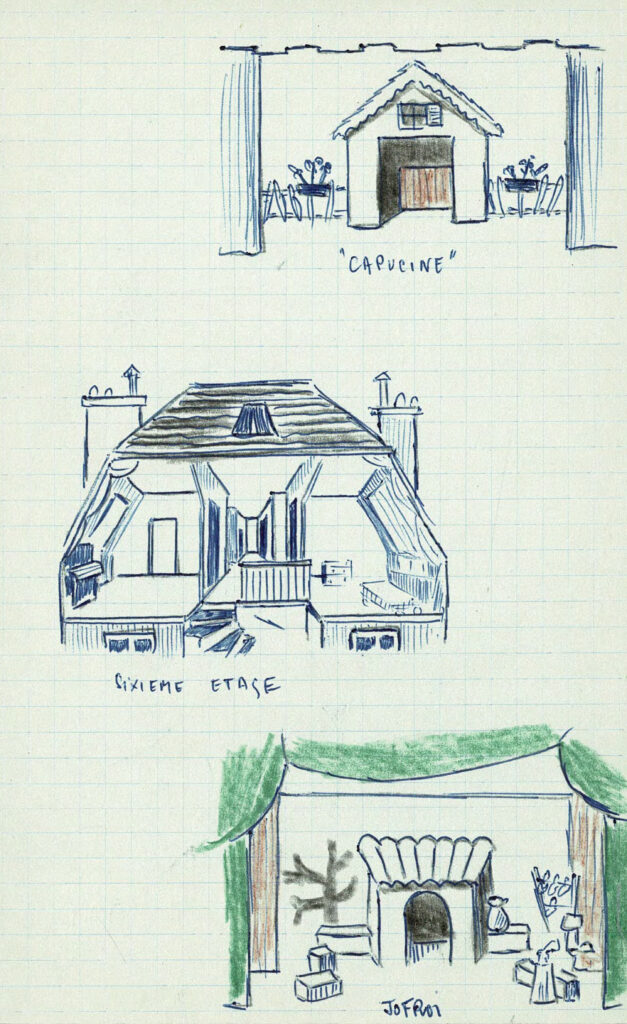 "CAPUCINE"
SIXIEME ETAGE
JOFROI